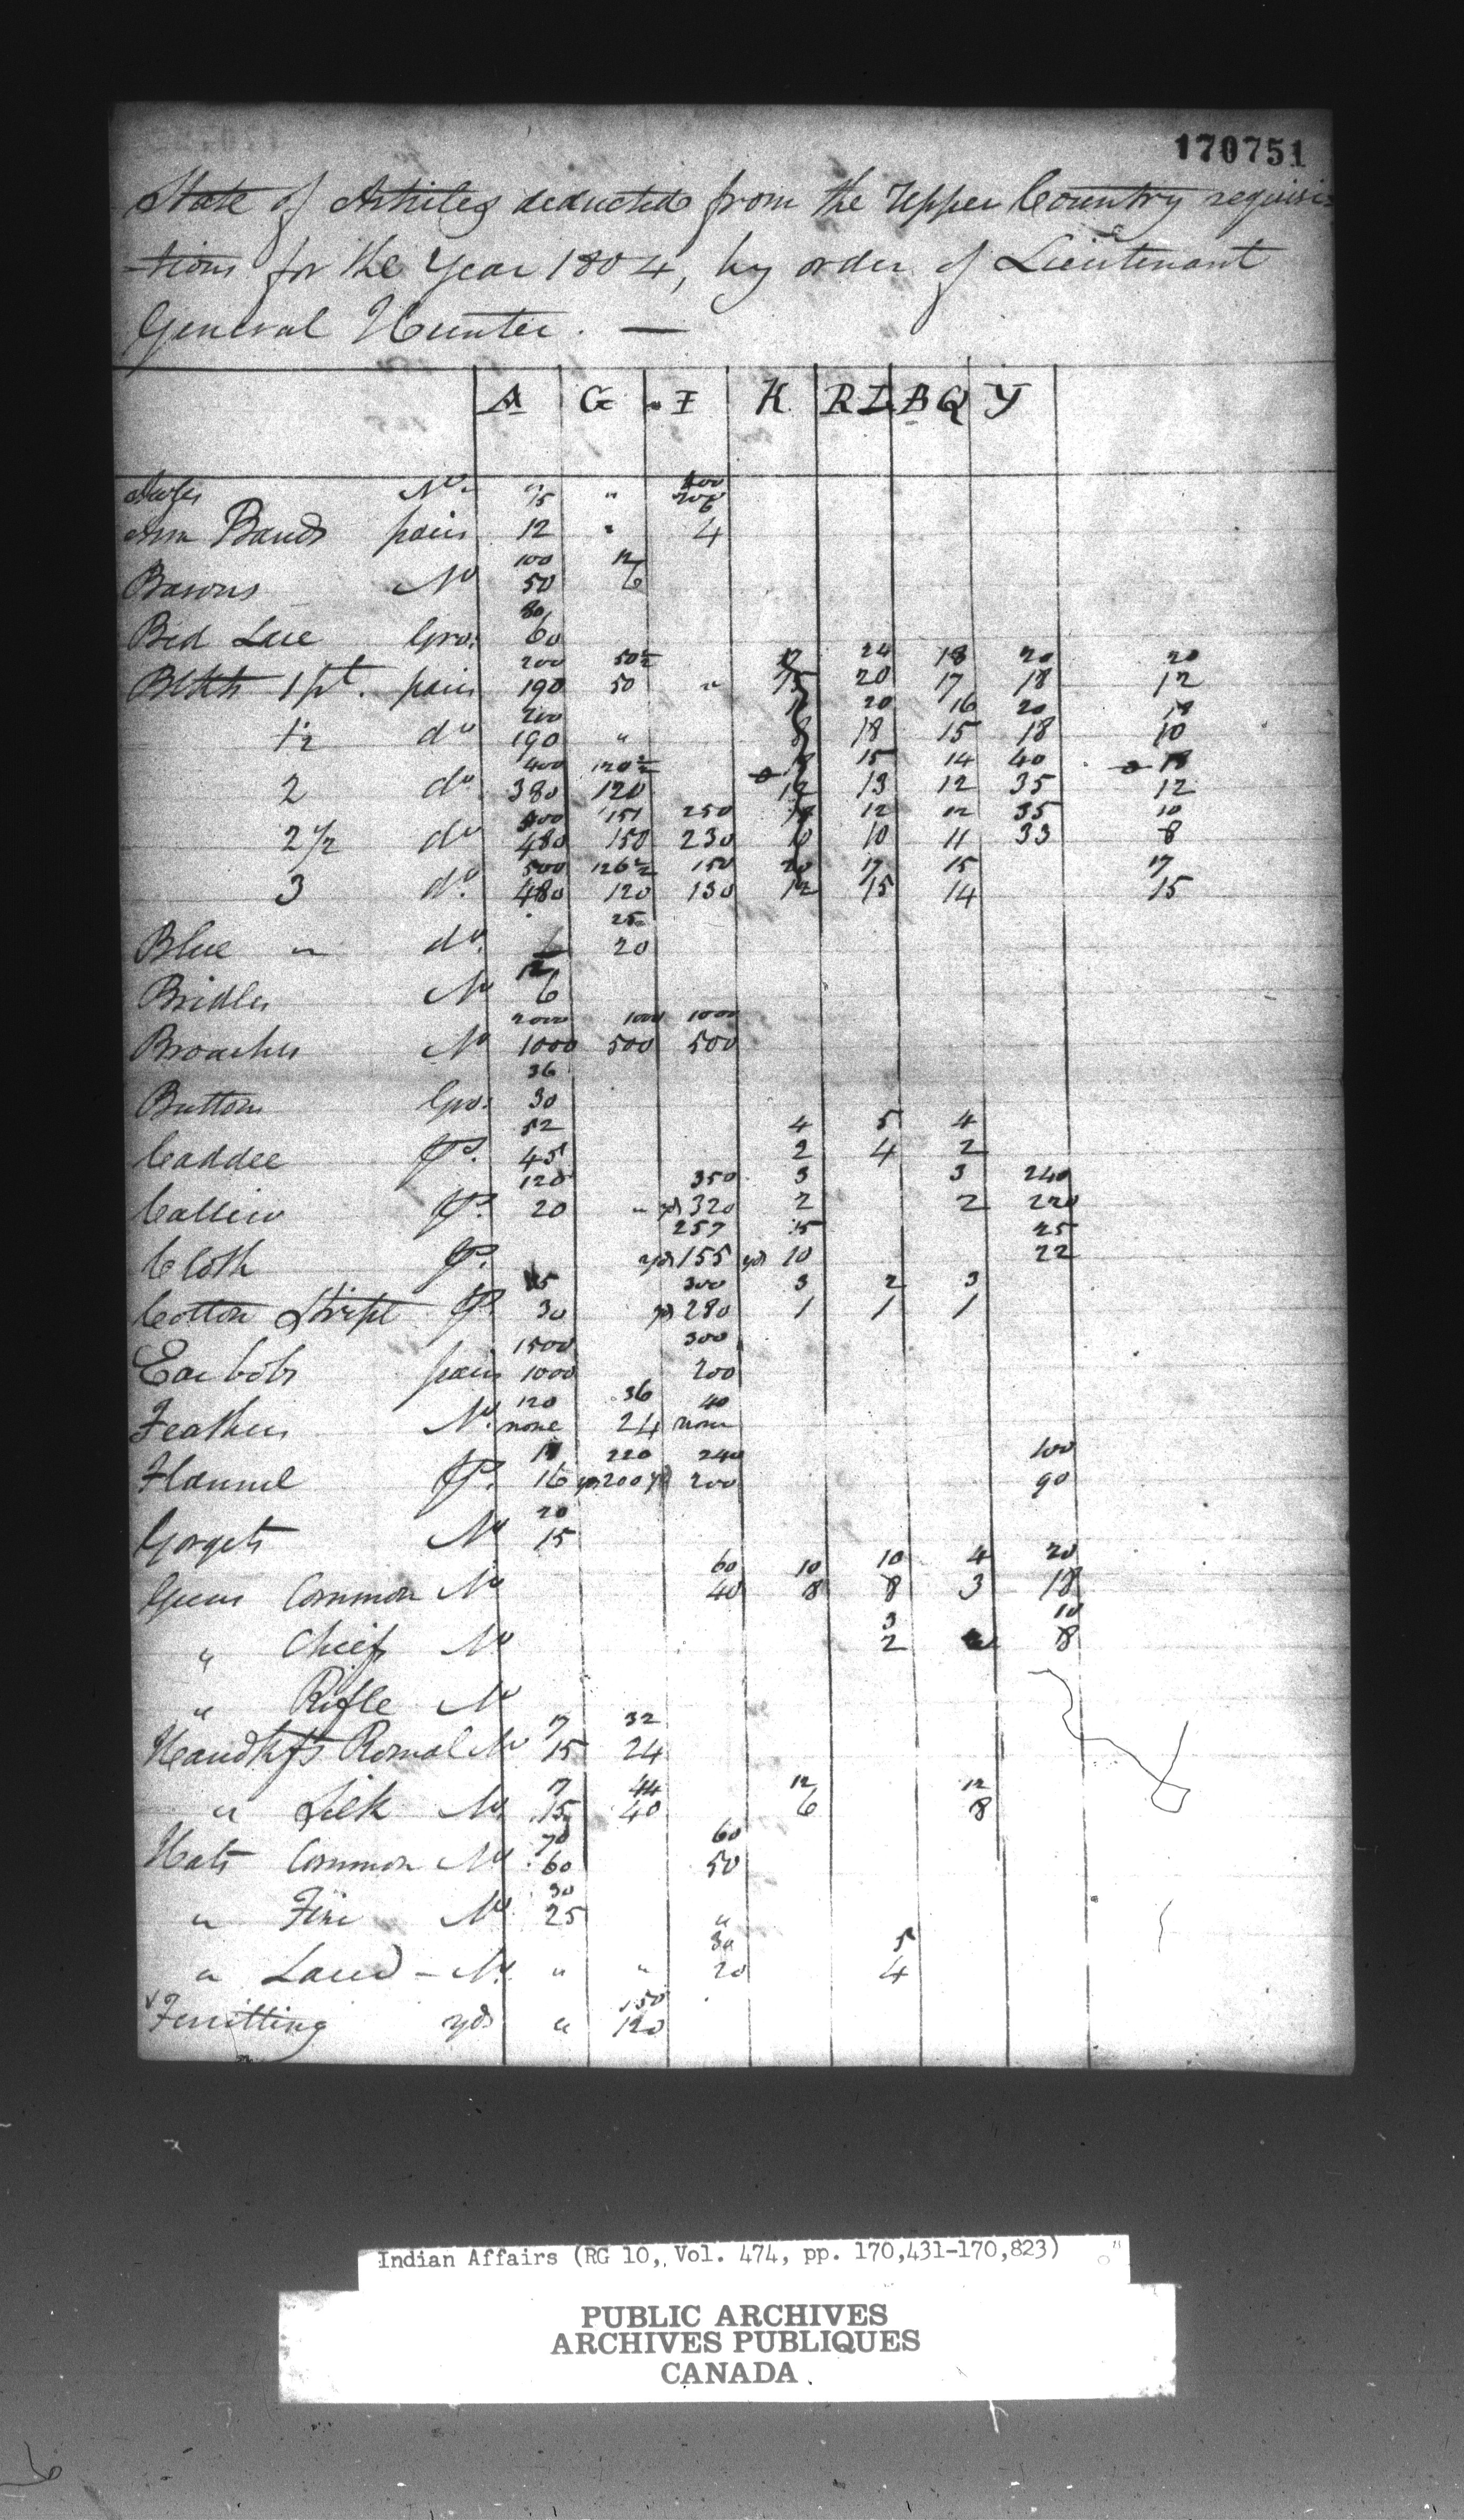 170751
State of Articles deducted from the Upper Country requisi-
-tions for the Year 1804, by order of Lieutenant
General Hunter. —
A G I K RL BQ Y
400
No. " " 200
15 6
Arm Bands pairs 12 " 4
100 12
Basons No 50 6
80
Bed Lace Gro. 60
200 50½ 24 18 20 20
Blkts 1 pt. pairs 190 50 " 15 20 17 18 12
200 20 16 20
1½ do 190 " 8 18 15 18 10
400 120½ 15 14 40 18
2 do 380 120 12 13 12 35 12
500 151 250 12 12 35 10
2½ do 480 150 230 10 10 11 33 8
500 126½ 150 20 17 15 17
3 do. 480 120 130 12 15 14 15
25
Blue " do. 20
12
Bridles No 6
2000 1000 1000
Broaches No 1000 500 500
36
Buttons Gro. 30
52 4 5 4
Caddee ps. 45 2 4 2
120 350 3 3 240
Callico ps. 20 " yds 320 2 2 220
257 15 25
Cloth ps. yds 155 yds 10 22
300 3 2 3
Cotton Stripe ps. 30 yds 280 1 1 1
1500 300
Earbobs pairs 1000 200
120 36 40
Feathers No. none 24 none
17 220 240 100
Flannel ps. 16 yds 200 yds 200 90
20
Gorgets No 15
60 10 10 4 20
Guns Common No 40 8 8 3 18
3 10
" Chief No 2 8
" Rifle No
17 32
Handkfs Romal No 15 24
17 44 12 12
" Silk No. 15 40 6 8
70 60
Hats Common No 60 50
30
" Fine No 25 "
30 5
" Laced — No. " " 20 4
150
Ferritting yds " 120
Indian Affairs (RG 10, Vol. 474, pp. 170,431-170,823)
PUBLIC ARCHIVES
ARCHIVES PUBLIQUES
CANADA